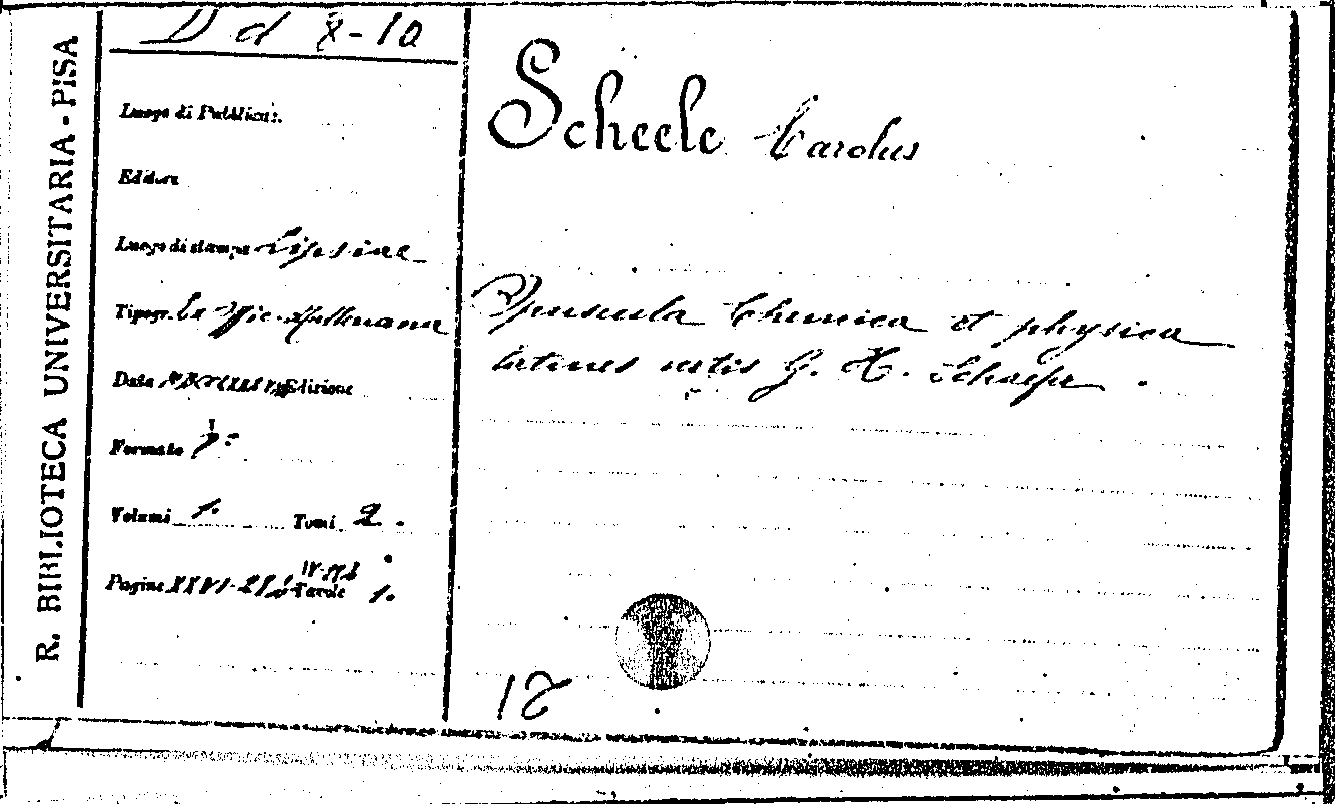 R. BIBLIOTECA UNIVERSITARIA - PISA
D d 8-10
Luogo di Pubblicaz.
Editore
Luogo di stampa Lipsiae
Tipogr. Ex Offic. Mülleriana
Data Edizione
Formato 8º
Volumi 1. Tomi 2.
Pagine XXVI- Tavole 1.
Scheele Carolus
Opuscula Chemica et physica
latines vertis G. H. Schaefer.
18